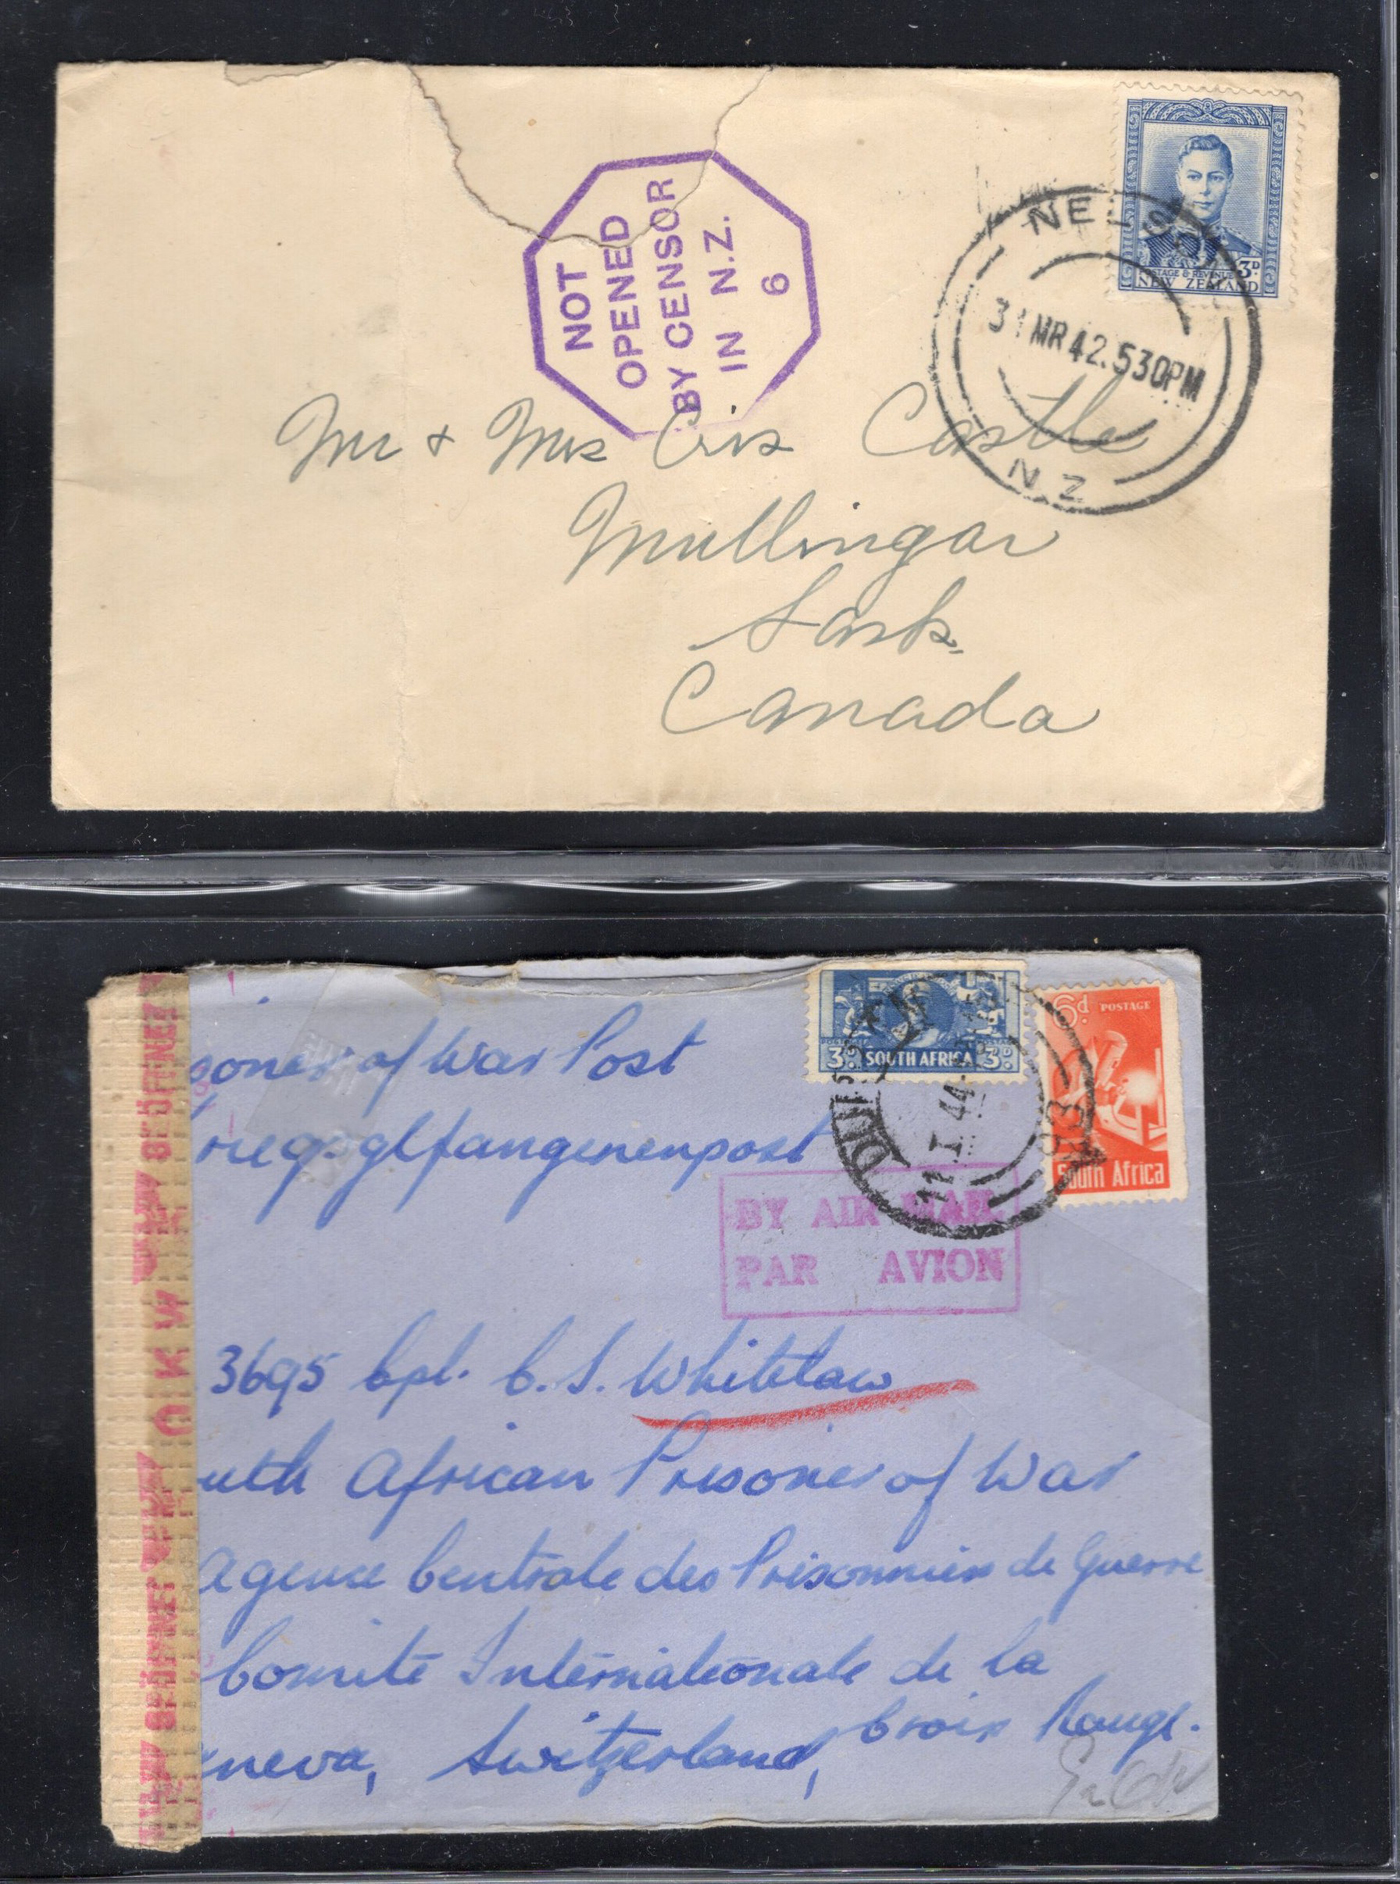 NOT
OPENED
BY CENSOR
IN N.Z.
6
3D
POSTAGE & REVENUE
NEW ZEALAND
NELSO
31 MR 42.530PM
N Z
Mr & Mrs Cris Castle
Mullingar
Sask.
Canada
3D SOUTH AFRICA 3D
6d. POSTAGE
South Africa
11 I 44
soner of War Post
riegsgefangenenpost
BY AIR MAIL
PAR AVION
3695 Cpl. C. S. Whitelaw
uth African Prisoner of War
Agence Centrale des Prisonniers de Guerre
Comité Internationale de la
Croix Rouge.
neva, Switzerland,
GEÖFFNET
O K W
GEÖFFNET